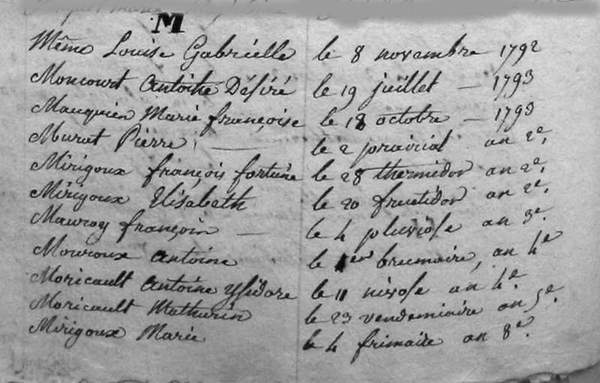 M
Mêmo Louise Gabrielle le 8 novembre 1792
Moncourt Antoine Désiré le 19 juillet — 1793
Mauquien Marie françoise le 18 octobre — 1793
Muret Pierre — le 2 prairial an 2e.
Mirigoux françois fortuné le 28 thermidor an 2e.
Mirigoux Elisabeth le 20 fructidor an 2e.
Mauroy françoin — le 4 pluviose an 3e.
Mouroux Antoine le 1er brumaire, an 4e
Moricault Antoine ysidore le 11 nivose an 4e.
Moricault Mathurin le 23 vendemiaire an 5e.
Mirigoux Marie le 4 frimaire an 8e.